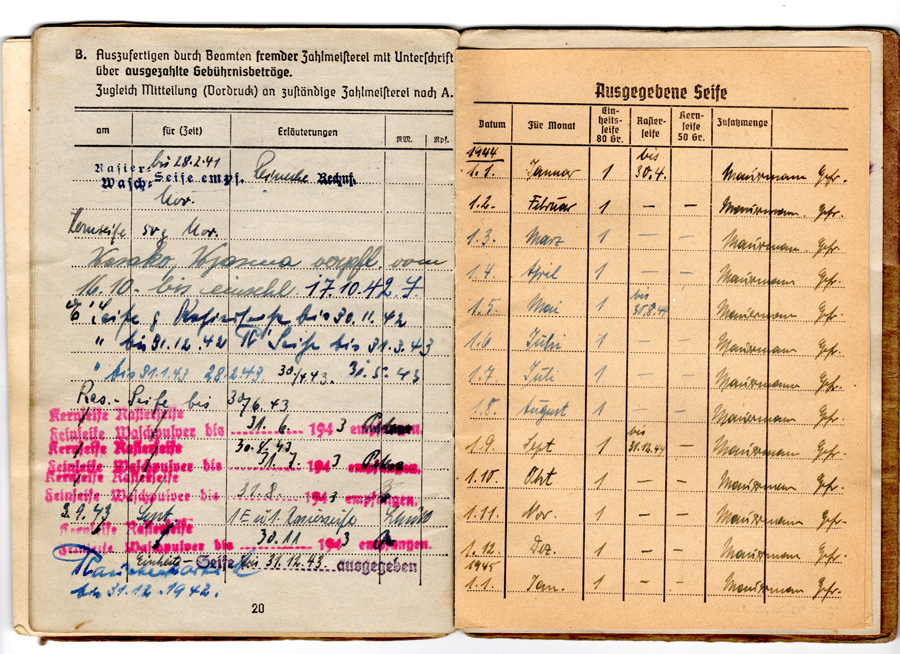 B. Auszufertigen durch Beamten fremder Zahlmeisterei mit Unterschrift
über ausgezahlte Gebührnisbeträge.
Zugleich Mitteilung (Vordruck) an zuständige Zahlmeisterei nach A.
am für (Zeit) Erläuterungen RM. Rpf.
Rasier- bis 28.2.41
Wasch- Seife empf. Rechnf.
Nov.
Kernseife 50 g Nov.
verpfl. vom
16.10. bis einschl. 17.10.42
Seife g Rasierseife bis 30.11.42
" bis 31.12.42 Seife bis 31.3.43
" bis 31.1.43 28.2.43 30/4.43. 31.5.43
Ras.-Seife bis 30/6.43
Kernseife Rasierseife
Feinseife Waschpulver bis 31.6. 1943 empfangen.
Kernseife Rasierseife 30.4.43
Feinseife Waschpulver bis 31.7. 1943 empfangen.
Kernseife Rasierseife
Feinseife Waschpulver bis 31.8. 1943 empfangen.
3.9.43 Sept. 1 E u. 1 Rasierseife
Kernseife Rasierseife
Feinseife Waschpulver bis 30.11 1943 empfangen.
Einheits-Seife bis 31.12.43 ausgegeben
bis 31.12.1942.
20
Ausgegebene Seife
Datum Für Monat Einheitsseife 80 Gr. Rasierseife Kernseife 50 Gr. Zusatzmenge
1944
1.1. Januar 1 bis 30.4. Maurmann Gefr.
1.2. Februar 1 — — Maurmann Gefr.
1.3. März 1 — — Maurmann Gefr.
1.4. April 1 — — Maurmann Gefr.
1.5. Mai 1 bis 31.8.44 — Maurmann Gefr.
1.6 Juni 1 — — Maurmann Gefr.
1.7. Juli 1 — — Maurmann Gefr.
1.8. August 1 — — Maurmann Gefr.
1.9. Sept 1 bis 31.12.44 — Maurmann Gefr.
1.10. Okt 1 — — Maurmann Gefr.
1.11. Nov. 1 — — Maurmann Gefr.
1.12. Dez. 1 — — Maurmann Gefr.
1945
1.1. Jan. 1 — — Maurmann Gefr.